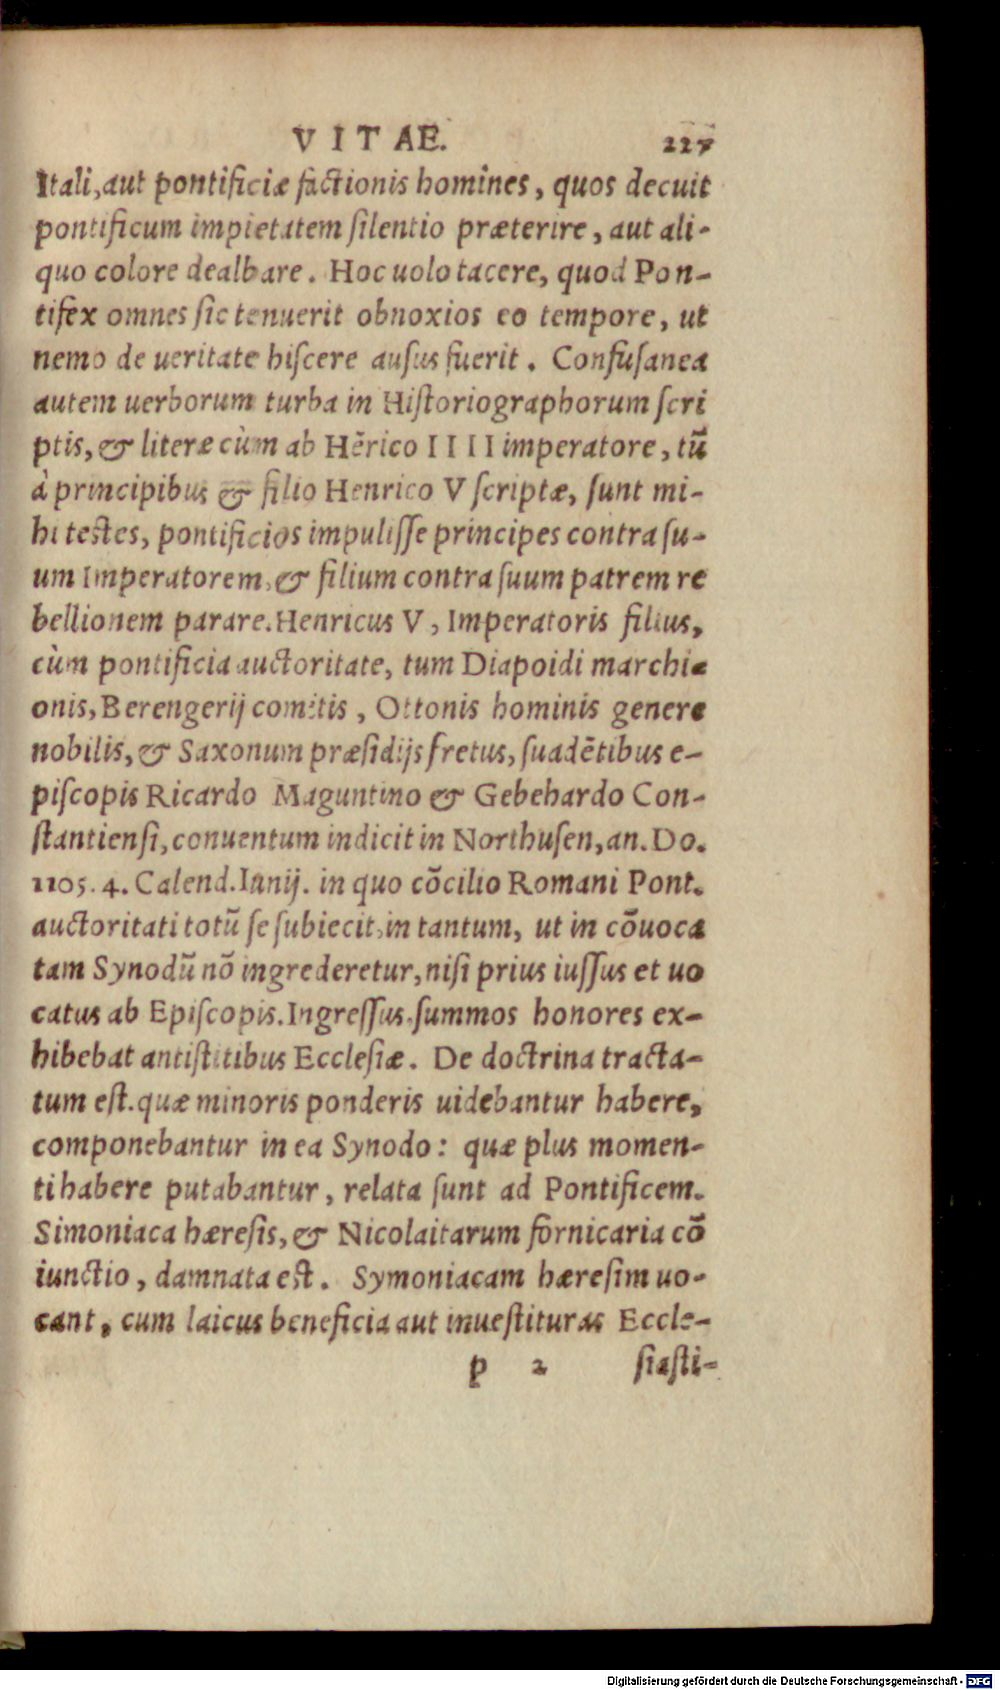 VITAE. 227
Itali, aut pontificiæ factionis homines, quos decuit
pontificum impietatem silentio præterire, aut ali-
quo colore dealbare. Hoc uolo tacere, quod Pon-
tifex omnes sic tenuerit obnoxios eo tempore, ut
nemo de ueritate hiscere ausus fuerit. Confusanea
autem uerborum turba in Historiographorum scri
ptis, & literæ cùm ab Hērico IIII imperatore, tū
à principibus & filio Henrico V scriptæ, sunt mi-
hi testes, pontificios impulisse principes contra su-
um Imperatorem, & filium contra suum patrem re
bellionem parare. Henricus V, Imperatoris filius,
cùm pontificia auctoritate, tum Diapoidi marchi-
onis, Berengerij comitis, Ottonis hominis genere
nobilis, & Saxonum præsidijs fretus, suadētibus e-
piscopis Ricardo Maguntino & Gebehardo Con-
stantiensi, conuentum indicit in Northusen, an. Do.
1105. 4. Calend. Iunij. in quo cōcilio Romani Pont.
auctoritati totū se subiecit, in tantum, ut in cōuoca
tam Synodū nō ingrederetur, nisi prius iussus et uo
catus ab Episcopis. Ingressus, summos honores ex-
hibebat antistitibus Ecclesiæ. De doctrina tracta-
tum est. quæ minoris ponderis uidebantur habere,
componebantur in ea Synodo: quæ plus momen-
ti habere putabantur, relata sunt ad Pontificem.
Simoniaca hæresis, & Nicolaitarum fornicaria cō
iunctio, damnata est. Symoniacam hæresim uo-
cant, cum laicus beneficia aut inuestituras Eccle-
p 2 siasti-
Digitalisierung gefördert durch die Deutsche Forschungsgemeinschaft - DFG